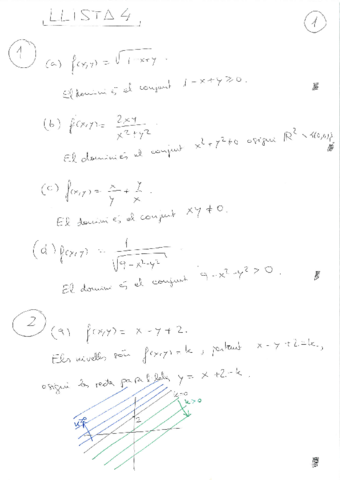 LLISTA 4
1
1
(a) f(x,y) = √1-x+y.
El domini és el conjunt 1-x+y ≥ 0.
(b) f(x,y) = 2xy / x²+y²
El domini és el conjunt x²+y² ≠ 0 o sigui ℝ² \ {(0,0)}
(c) f(x,y) = x/y + y/x
El domini és el conjunt xy ≠ 0.
(d) f(x,y) = 1 / √9-x²-y²
El domini és el conjunt 9-x²-y² > 0.
2
(a) f(x,y) = x-y+2.
Els nivells són f(x,y) = k, x-y+2=k,
o sigui y = x+2-k.
k=0
k>0
2